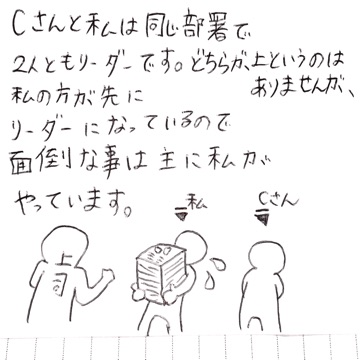 Cさんと私は同じ部署で
2人ともリーダーです。どちらが上というのは
ありませんが、
私の方が先に
リーダーになっているので
面倒な事は主に私が
やっています。
私
Cさん
上司